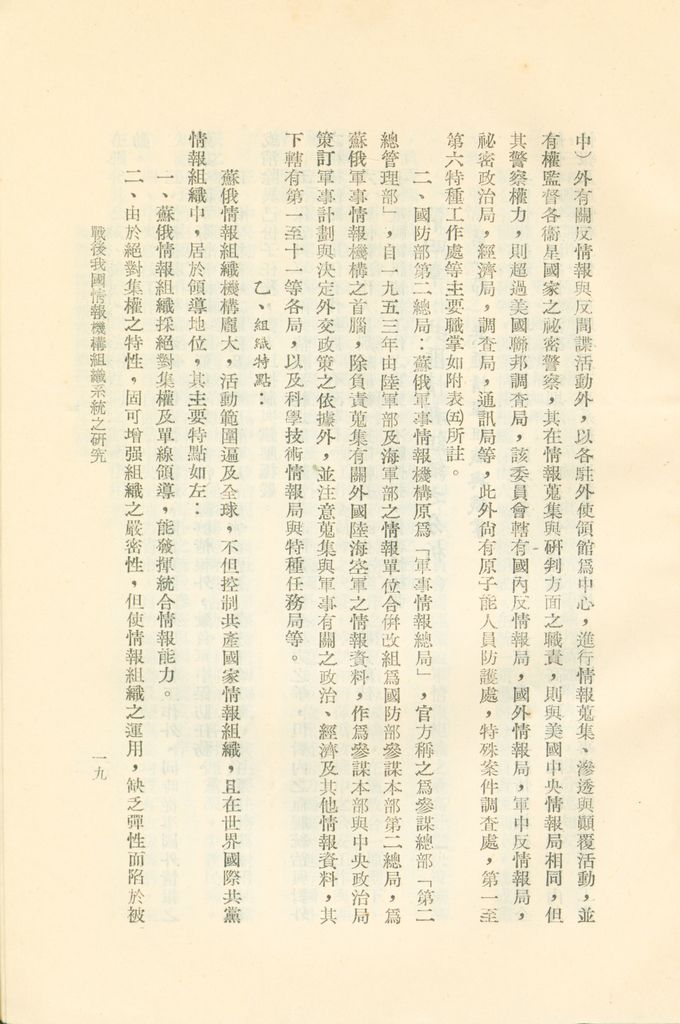 中）外有關反情報與反間諜活動外，以各駐外使領館爲中心，進行情報蒐集、滲透與顚覆活動，並
有權監督各衞星國家之祕密警察，其在情報蒐集與硏判方面之職責，則與美國中央情報局相同，但
其警察權力，則超過美國聯邦調查局，該委員會轄有國內反情報局，國外情報局，軍中反情報局，
祕密政治局，經濟局，調查局，通訊局等，此外尙有原子能人員防護處，特殊案件調查處，第一至
第六特種工作處等主要職掌如附表㈤所註。
二、國防部第二總局：蘇俄軍事情報機構原爲「軍事情報總局」，官方稱之爲參謀總部「第二
總管理部」，自一九五三年由陸軍部及海軍部之情報單位合併改組爲國防部參謀本部第二總局，爲
蘇俄軍事情報機構之首腦，除負責蒐集有關外國陸海空軍之情報資料，作爲參謀本部與中央政治局
策訂軍事計劃與決定外交政策之依據外，並注意蒐集與軍事有關之政治、經濟及其他情報資料，其
下轄有第一至十一等各局，以及科學技術情報局與特種任務局等。
乙、組織特點：
蘇俄情報組織機構龐大，活動範圍遍及全球，不但控制共產國家情報組織，且在世界國際共黨
情報組織中，居於領導地位，其主要特點如左：
一、蘇俄情報組織採絕對集權及單線領導，能發揮統合情報能力。
二、由於絕對集權之特性，固可增强組織之嚴密性，但使情報組織之運用，缺乏彈性而陷於被
戰後我國情報機構組織系統之硏究
一九